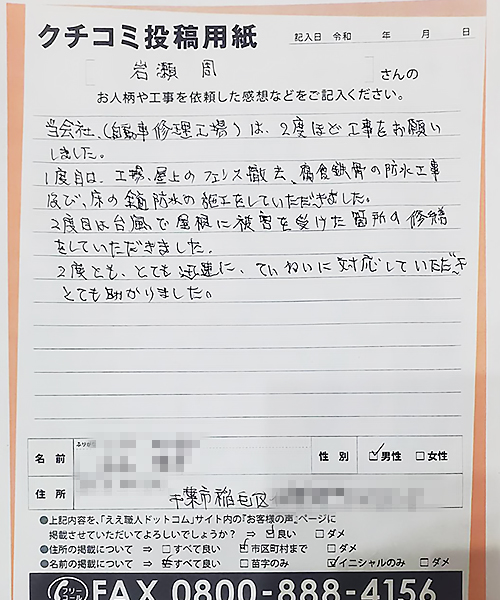 クチコミ投稿用紙
記入日 令和 年 月 日
岩瀬 周 さんの
お人柄や工事を依頼した感想などをご記入ください。
当会社、(自動車修理工場)は、2度ほど工事をお願い
しました。
1度目は、工場、屋上のフェンス撤去、腐食鉄骨の防水工事
及び、床の 防水の施工をしていただきました。
2度目は台風で屋根に被害を受けた箇所の修繕
をしていただきました。
2度とも、とても迅速に、ていねいに対応していただき
とても助かりました。
ふりがな
名前
性別 男性 女性
住所
千葉市稲毛区
●上記内容を、「ええ職人ドットコム」サイト内の『お客様の声』ページに
掲載させていただいてよろしいでしょうか? ⇒ 良い ダメ
●住所の掲載について ⇒ すべて良い 市区町村まで ダメ
●名前の掲載について ⇒ すべて良い 苗字のみ イニシャルのみ ダメ
フリーコール FAX 0800-888-4156